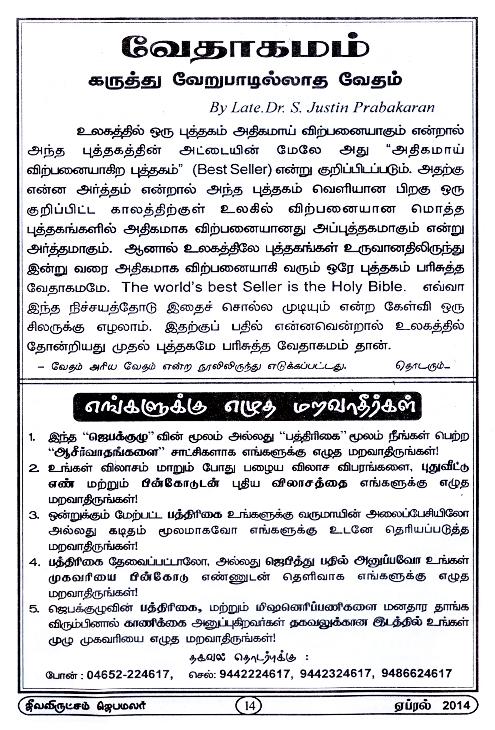 வேதாகமம்
கருத்து வேறுபாடில்லாத வேதம்
By Late.Dr. S. Justin Prabakaran
உலகத்தில் ஒரு புத்தகம் அதிகமாய் விற்பனையாகும் என்றால்
அந்த புத்தகத்தின் அட்டையின் மேலே அது "அதிகமாய்
விற்பனையாகிற புத்தகம்" (Best Seller) என்று குறிப்பிடப்படும். அதற்கு
என்ன அர்த்தம் என்றால் அந்த புத்தகம் வெளியான பிறகு ஒரு
குறிப்பிட்ட காலத்திற்குள் உலகில் விற்பனையான மொத்த
புத்தகங்களில் அதிகமாக விற்பனையானது அப்புத்தகமாகும் என்று
அர்த்தமாகும். ஆனால் உலகத்திலே புத்தகங்கள் உருவானதிலிருந்து
இன்று வரை அதிகமாக விற்பனையாகி வரும் ஒரே புத்தகம் பரிசுத்த
வேதாகமமே. The world's best Seller is the Holy Bible. எவ்வா
இந்த நிச்சயத்தோடு இதைச் சொல்ல முடியும் என்ற கேள்வி ஒரு
சிலருக்கு எழலாம். இதற்குப் பதில் என்னவென்றால் உலகத்தில்
தோன்றியது முதல் புத்தகமே பரிசுத்த வேதாகமம் தான்.
– வேதம் அரிய வேதம் என்ற நூலிலிருந்து எடுக்கப்பட்டது. தொடரும்...
எங்களுக்கு எழுத மறவாதீர்கள்
1. இந்த "ஜெபக்குழு" வின் மூலம் அல்லது "பத்திரிகை" மூலம் நீங்கள் பெற்ற
"ஆசீர்வாதங்களை" சாட்சிகளாக எங்களுக்கு எழுத மறவாதிருங்கள்!
2. உங்கள் விலாசம் மாறும் போது பழைய விலாச விபரங்களை, புதுவீட்டு
எண் மற்றும் பின்கோடுடன் புதிய விலாசத்தை எங்களுக்கு எழுத
மறவாதிருங்கள்!
3. ஒன்றுக்கும் மேற்பட்ட பத்திரிகை உங்களுக்கு வருமாயின் அலைப்பேசியிலோ
அல்லது கடிதம் மூலமாகவோ எங்களுக்கு உடனே தெரியப்படுத்த
மறவாதிருங்கள்!
4. பத்திரிகை தேவைப்பட்டாலோ, அல்லது ஜெபித்து பதில் அனுப்பவோ உங்கள்
முகவரியை பின்கோடு எண்ணுடன் தெளிவாக எங்களுக்கு எழுத
மறவாதிருங்கள்!
5. ஜெபக்குழுவின் பத்திரிகை, மற்றும் மிஷனெரிப்பணிகளை மனதார தாங்க
விரும்பினால் காணிக்கை அனுப்புகிறவர்கள் தகவலுக்கான இடத்தில் உங்கள்
முழு முகவரியை எழுத மறவாதிருங்கள்!
தகவல் தொடர்புக்கு :
போன் : 04652-224617, செல்: 9442224617, 9442324617, 9486624617
ஜீவவிருட்சம் ஜெபமலர் 14 ஏப்ரல் 2014